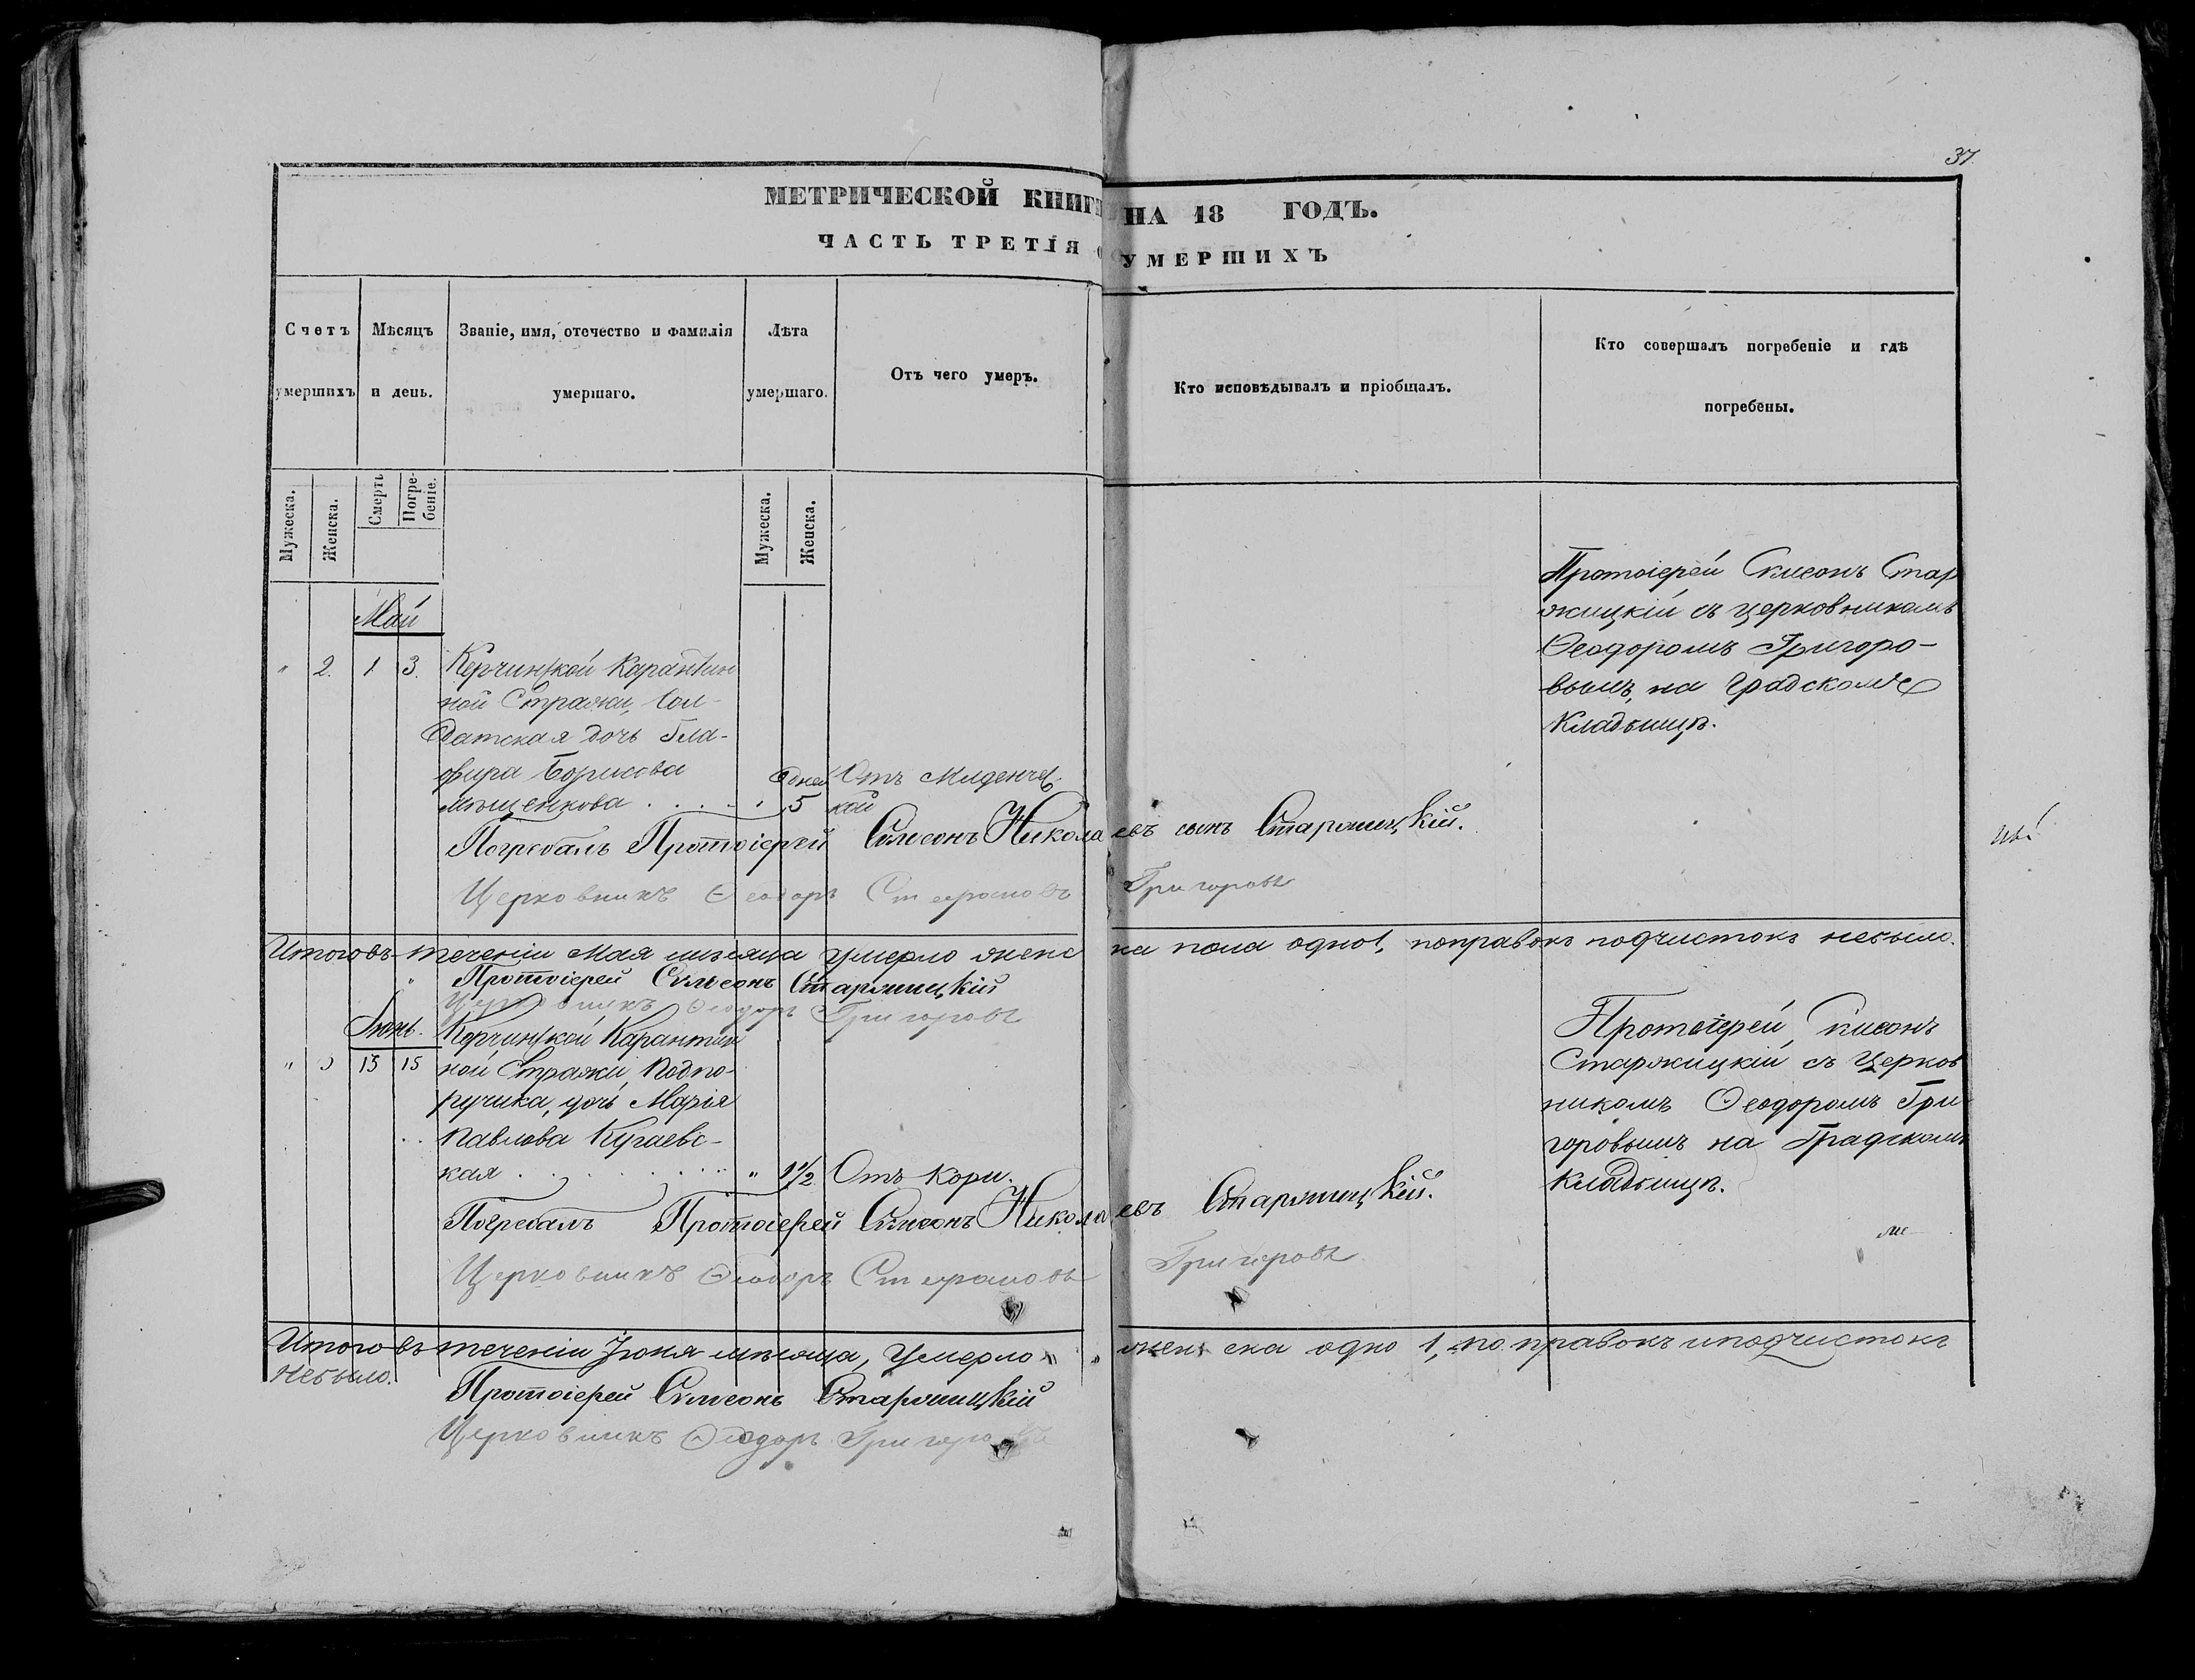 37.
МЕТРИЧЕСКОЙ КНИГИ НА 18 ГОДЪ.
ЧАСТЬ ТРЕТІЯ О УМЕРШИХЪ
Счетъ умершихъ
Мѣсяцъ и день.
Званіе, имя, отечество и фамилія умершаго.
Лѣта умершаго.
Отъ чего умеръ.
Кто исповѣдывалъ и пріобщалъ.
Кто совершалъ погребеніе и гдѣ погребены.
Мужеска.
Женска.
Смерть
Погре-
беніе.
Мужеска.
Женска.
Май
" 2. 1 3. Керчинской Карантин
ной Стражи, Сол-
датская дочь Гла-
фира Борисова
Мищенкова . . . . "
дней
5
Отъ Младенчес
кой
Протоіерей Симеонъ Стар
жицкій съ церковникомъ
Ѳеодоромъ Григоро-
вымъ, на Градскомъ
Кладбищѣ.
Погребалъ Протоіерей Симеонъ Николаевъ сынъ Старжицкій.
Церковникъ Ѳеодоръ Стефановъ Григоровъ
Итого въ теченіи Мая мѣсяца умерло женска пола одно 1, поправокъ подчистокъ небыло.
Протоіерей Симеонъ Старжицкій
Церковникъ Ѳеодоръ Григоровъ
Іюнь.
" 3 13 15 Керчинской Карантин
ной Стражи, Подпо-
ручика, дочь Марія
Павлова Кугаевс-
кая . . . . . " 1 1/2 Отъ Кори.
Протоіерей Симеонъ
Старжицкій съ Церков
никомъ Ѳеодоромъ Гри
горовымъ на Градскомъ
Кладбищѣ.
Погребалъ Протоіерей Симеонъ Николаевъ Старжицкій.
Церковникъ Ѳеодоръ Стефановъ Григоровъ
Итого въ теченіи Іюня мѣсяца, умерло " " женска одно 1, поправокъ иподчистокъ
Небыло.
Протоіерей Симеонъ Старжицкій
Церковникъ Ѳеодоръ Григоровъ